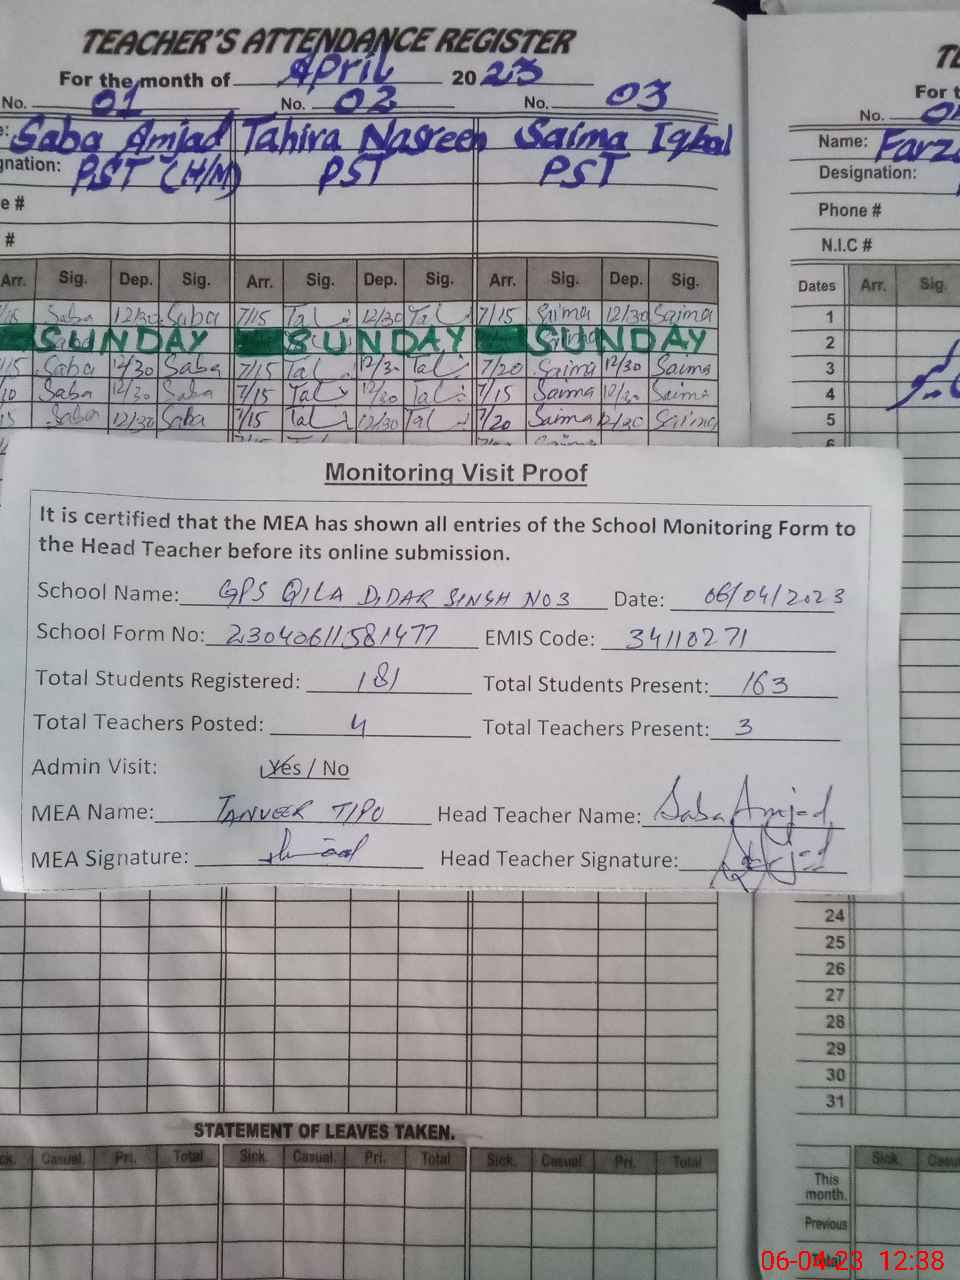 TEACHER'S ATTENDANCE REGISTER
For the month of April 2023
No. 01 No. 02 No. 03
Saba Amjad Tahira Nasreen Saima Iqbal
gnation: PST (H/M) PST PST
e #
#
Arr. Sig. Dep. Sig. Arr. Sig. Dep. Sig. Arr. Sig. Dep. Sig.
Saba 12/30 Saba 7/15 12/30 7/15 Saima 12/30 Saima
SUNDAY SUNDAY SUNDAY
Saba 12/30 Saba 7/15 12/30 7/20 Saima 12/30 Saima
Saba 12/30 Saba 7/15 12/30 7/15 Saima 12/30 Saima
Saba 12/30 Saba 7/15 12/30 7/20 Saima 12/30 Saima
For t
No.
Name: Farz
Designation:
Phone #
N.I.C #
Dates Arr. Sig.
1
2
3
4
5
6
Monitoring Visit Proof
It is certified that the MEA has shown all entries of the School Monitoring Form to
the Head Teacher before its online submission.
School Name: GPS QILA DIDAR SINGH NO 3 Date: 06/04/2023
School Form No: 23040611581477 EMIS Code: 34110271
Total Students Registered: 181 Total Students Present: 163
Total Teachers Posted: 4 Total Teachers Present: 3
Admin Visit: Yes / No
MEA Name: TANVEER TIPO Head Teacher Name: Saba Amjad
MEA Signature: Head Teacher Signature:
24
25
26
27
28
29
30
31
STATEMENT OF LEAVES TAKEN.
ck. Casual. Pri. Total Sick. Casual. Pri. Total Sick. Casual. Pri. Total
Sick. Casu
This
month.
Previous
Total
06-04-23 12:38